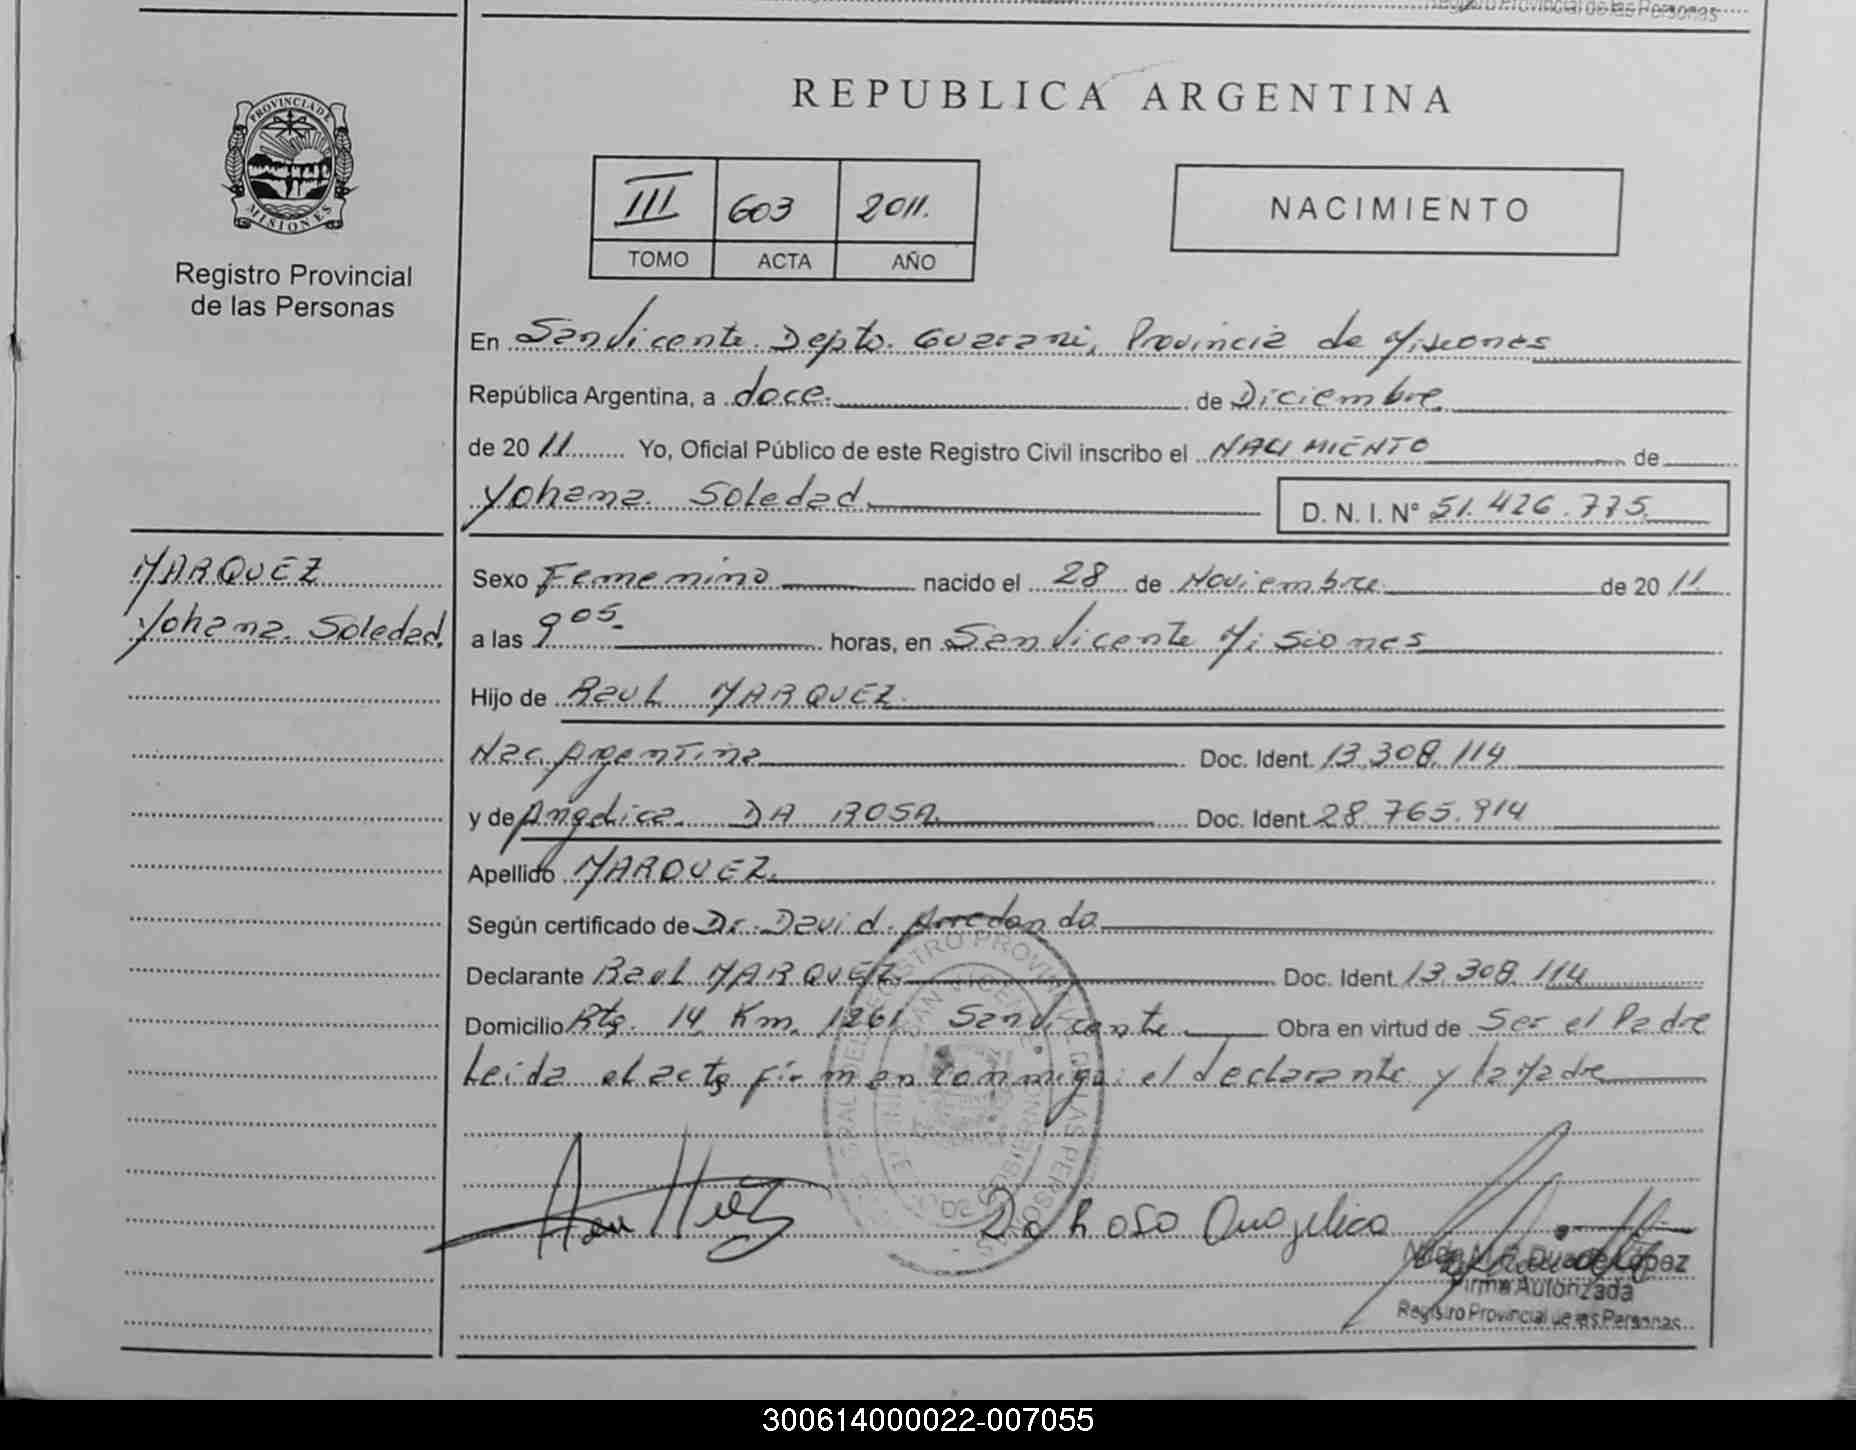 Registro Provincial de las Personas
PROVINCIA DE
MISIONES
Registro Provincial
de las Personas
REPUBLICA ARGENTINA
III 603 2011.
TOMO ACTA AÑO
NACIMIENTO
En San Vicente. Depto. Guarani, Provincia de Misiones
República Argentina, a doce. de Diciembre
de 2011 Yo, Oficial Público de este Registro Civil inscribo el NACIMIENTO de
Yohana. Soledad D. N. I. N° 51.426.775
MARQUEZ
Yohana. Soledad.
Sexo Femenino nacido el 28 de Noviembre de 2011.
a las 9 05. horas, en San Vicente Misiones
Hijo de Raul MARQUEZ.
Nac. Argentina Doc. Ident. 13.308.114
y de Angelica. DA ROSA Doc. Ident. 28.765.914
Apellido MARQUEZ.
Según certificado de Dr. David. Arredondo
Declarante Raul MARQUEZ. Doc. Ident. 13.308.114
Domicilio Rta. 14 Km. 1261 San Vicente Obra en virtud de Ser el Padre
Leida el acta firman conmigo: el declarante y la Madre
Da Rosa Angelica
Lopez
Firma Autorizada
Registro Provincial de las Personas
300614000022-007055